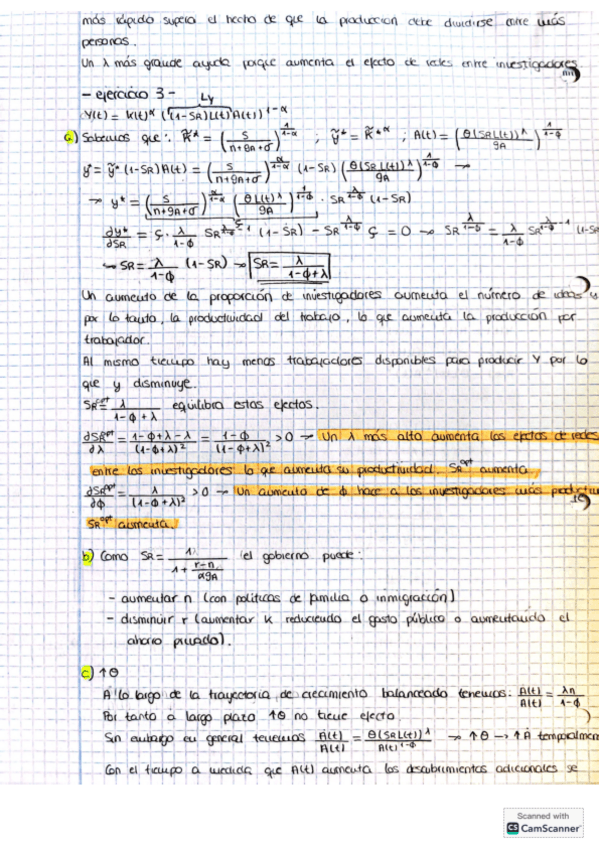 más rápido supera el hecho de que la producción debe dividirse entre más
personas.
Un λ más grande ayuda porque aumenta el efecto de redes entre investigadores
- ejercicio 3 -
Ly
Y(t) = K(t)^α ((1-SR)L(t)A(t))^1-α
a) Sabemos que: k̃* = (s/(n+gA+δ))^(1/(1-α)) ; ỹ* = k̃*^α ; A(t) = (θ(SRL(t))^λ/gA)^(1/(1-ϕ))
y* = ỹ*(1-SR)A(t) = (s/(n+gA+δ))^(α/(1-α)) (1-SR) (θ(SRL(t))^λ/gA)^(1/(1-ϕ)) →
→ y* = (s/(n+gA+δ))^(α/(1-α)) (θL(t)^λ/gA)^(1/(1-ϕ)) · SR^(λ/(1-ϕ)) (1-SR)
∂y*/∂SR = ς · λ/(1-ϕ) SR^(λ/(1-ϕ) -1) (1-SR) - SR^(λ/(1-ϕ)) ς = 0 → SR^(λ/(1-ϕ)) = λ/(1-ϕ) SR^(λ/(1-ϕ) -1) (1-S
↪ SR = λ/(1-ϕ) (1-SR) → SR = λ/(1-ϕ+λ)
Un aumento de la proporción de investigadores aumenta el número de ideas y
por lo tanto, la productividad del trabajo, lo que aumenta la producción por
trabajador.
Al mismo tiempo hay menos trabajadores disponibles para producir Y por lo
que y disminuye.
SR^opt = λ/(1-ϕ+λ) equilibra estos efectos.
∂SR^opt/∂λ = (1-ϕ+λ-λ)/(1-ϕ+λ)² = (1-ϕ)/(1-ϕ+λ)² > 0 → Un λ más alto aumenta los efectos de redes
entre los investigadores lo que aumenta su productividad. SR^opt aumenta
∂SR^opt/∂ϕ = λ/(1-ϕ+λ)² > 0 → Un aumento de ϕ hace a los investigadores más productiv
SR^opt aumenta.
b) Como SR = 1/(1 + (r-n)/(αgA)) el gobierno puede:
- aumentar n (con políticas de familia o inmigración)
- disminuir r (aumentar K reduciendo el gasto público o aumentando el
ahorro privado).
c) ↑θ
A lo largo de la trayectoria de crecimiento balanceado tenemos: Ȧ(t)/A(t) = λn/(1-ϕ)
Por tanto a largo plazo ↑θ no tiene efecto.
Sin embargo en general tenemos Ȧ(t)/A(t) = θ(SRL(t))^λ/A(t)^(1-ϕ) → ↑θ → ↑Ȧ temporalmen
Con el tiempo a medida que A(t) aumenta los descubrimientos adicionales se
Scanned with
CS CamScanner